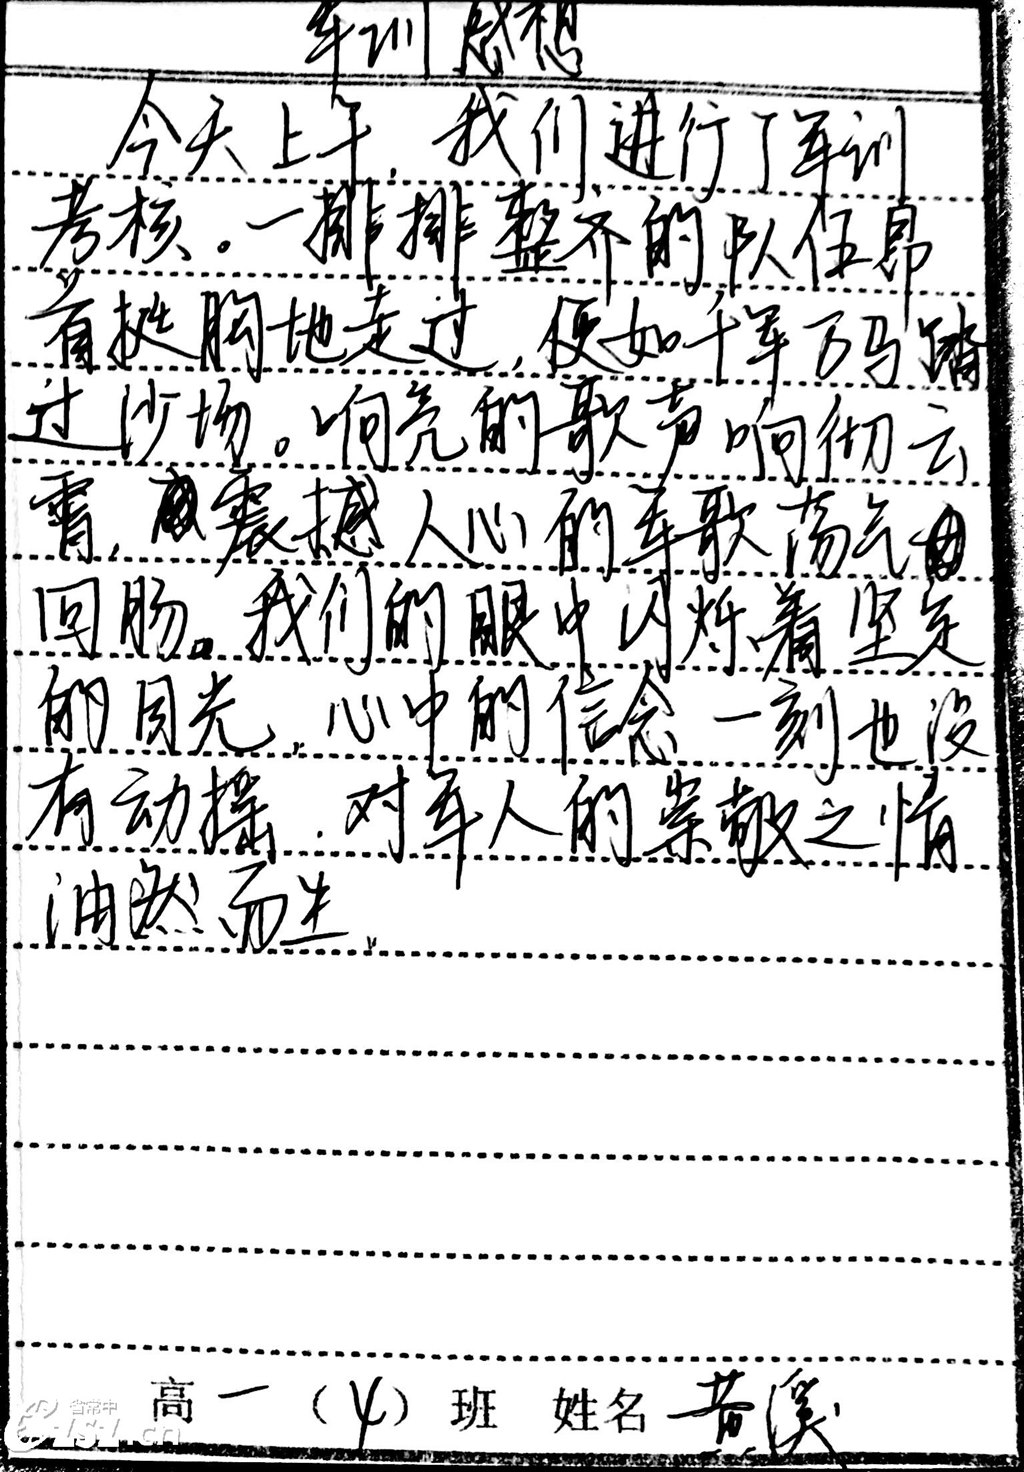 军训感想
今天上午，我们进行了军训
考核。一排排整齐的队伍昂
首挺胸地走过，便如千军万马踏
过沙场。响亮的歌声响彻云
霄，震撼人心的军歌荡气
回肠。我们的眼中闪烁着坚定
的目光，心中的信念一刻也没
有动摇，对军人的崇敬之情
油然而生。
高一（4）班 姓名 黄溪
省常中